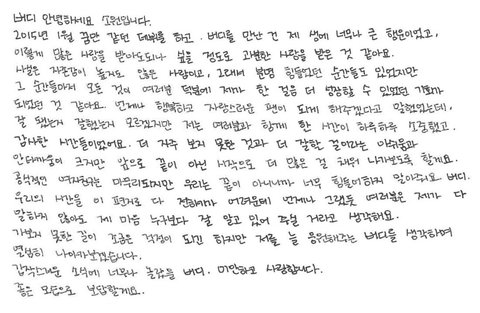 버디 안녕하세요 소원입니다.
2015년 1월 꿈만 같던 데뷔를 하고. 버디를 만난 건 제 생에 너무나 큰 행운이었고,
이렇게 많은 사랑을 받아도되나 싶을 정도로 과분한 사랑을 받은 것 같아요.
사실은 자존감이 높지도 않은 사람이고, 그래서 분명 힘들었던 순간들도 있었지만
그 순간들마저 모든 것이 여러분 덕분에 제가 한 걸음 더 성장할 수 있었던 기회가
되었던 것 같아요. 언제나 행복하고 자랑스러운 팬이 되게 해주겠다고 말했었는데,
잘 됐는지 잘했는지 모르겠지만 저는 여러분과 함께 한 시간이 하루하루 소중했고.
감사한 시간들이었어요. 더 자주 보지 못한 것과 더 잘할 걸이라는 아쉬움과
안타까움이 크지만 앞으로 끝이 아닌 시작으로 더 많은 걸 채워 나가보도록 할게요.
공식적인 여자친구는 마무리되지만 우리는 끝이 아니니까 너무 힘들어하지 말아주요. 버디.
우리의 시간을 이 편지로 다 전하기가 어려움에 언제나 그랬듯 여러분은 제가 다
말하지 않아도 제 마음 누구보다 잘 알고 있어 주실 거라고 생각해요.
가보지 못한 길이 조금은 걱정이 되긴 하지만 저를 늘 응원해주는 버디를 생각하며
열심히 나아가보겠습니다.
갑작스러운 소식에 너무나 놀랐을 버디. 미안하고 사랑합니다.
좋은 모습으로 보답할게요.